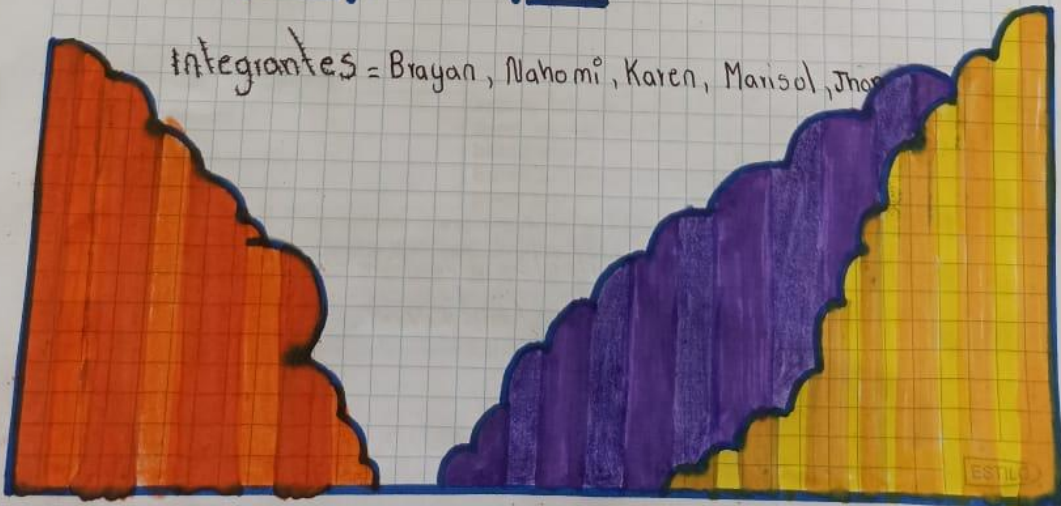 Integrantes = Brayan, Nahomi, Karen, Marisol,
ESTILO